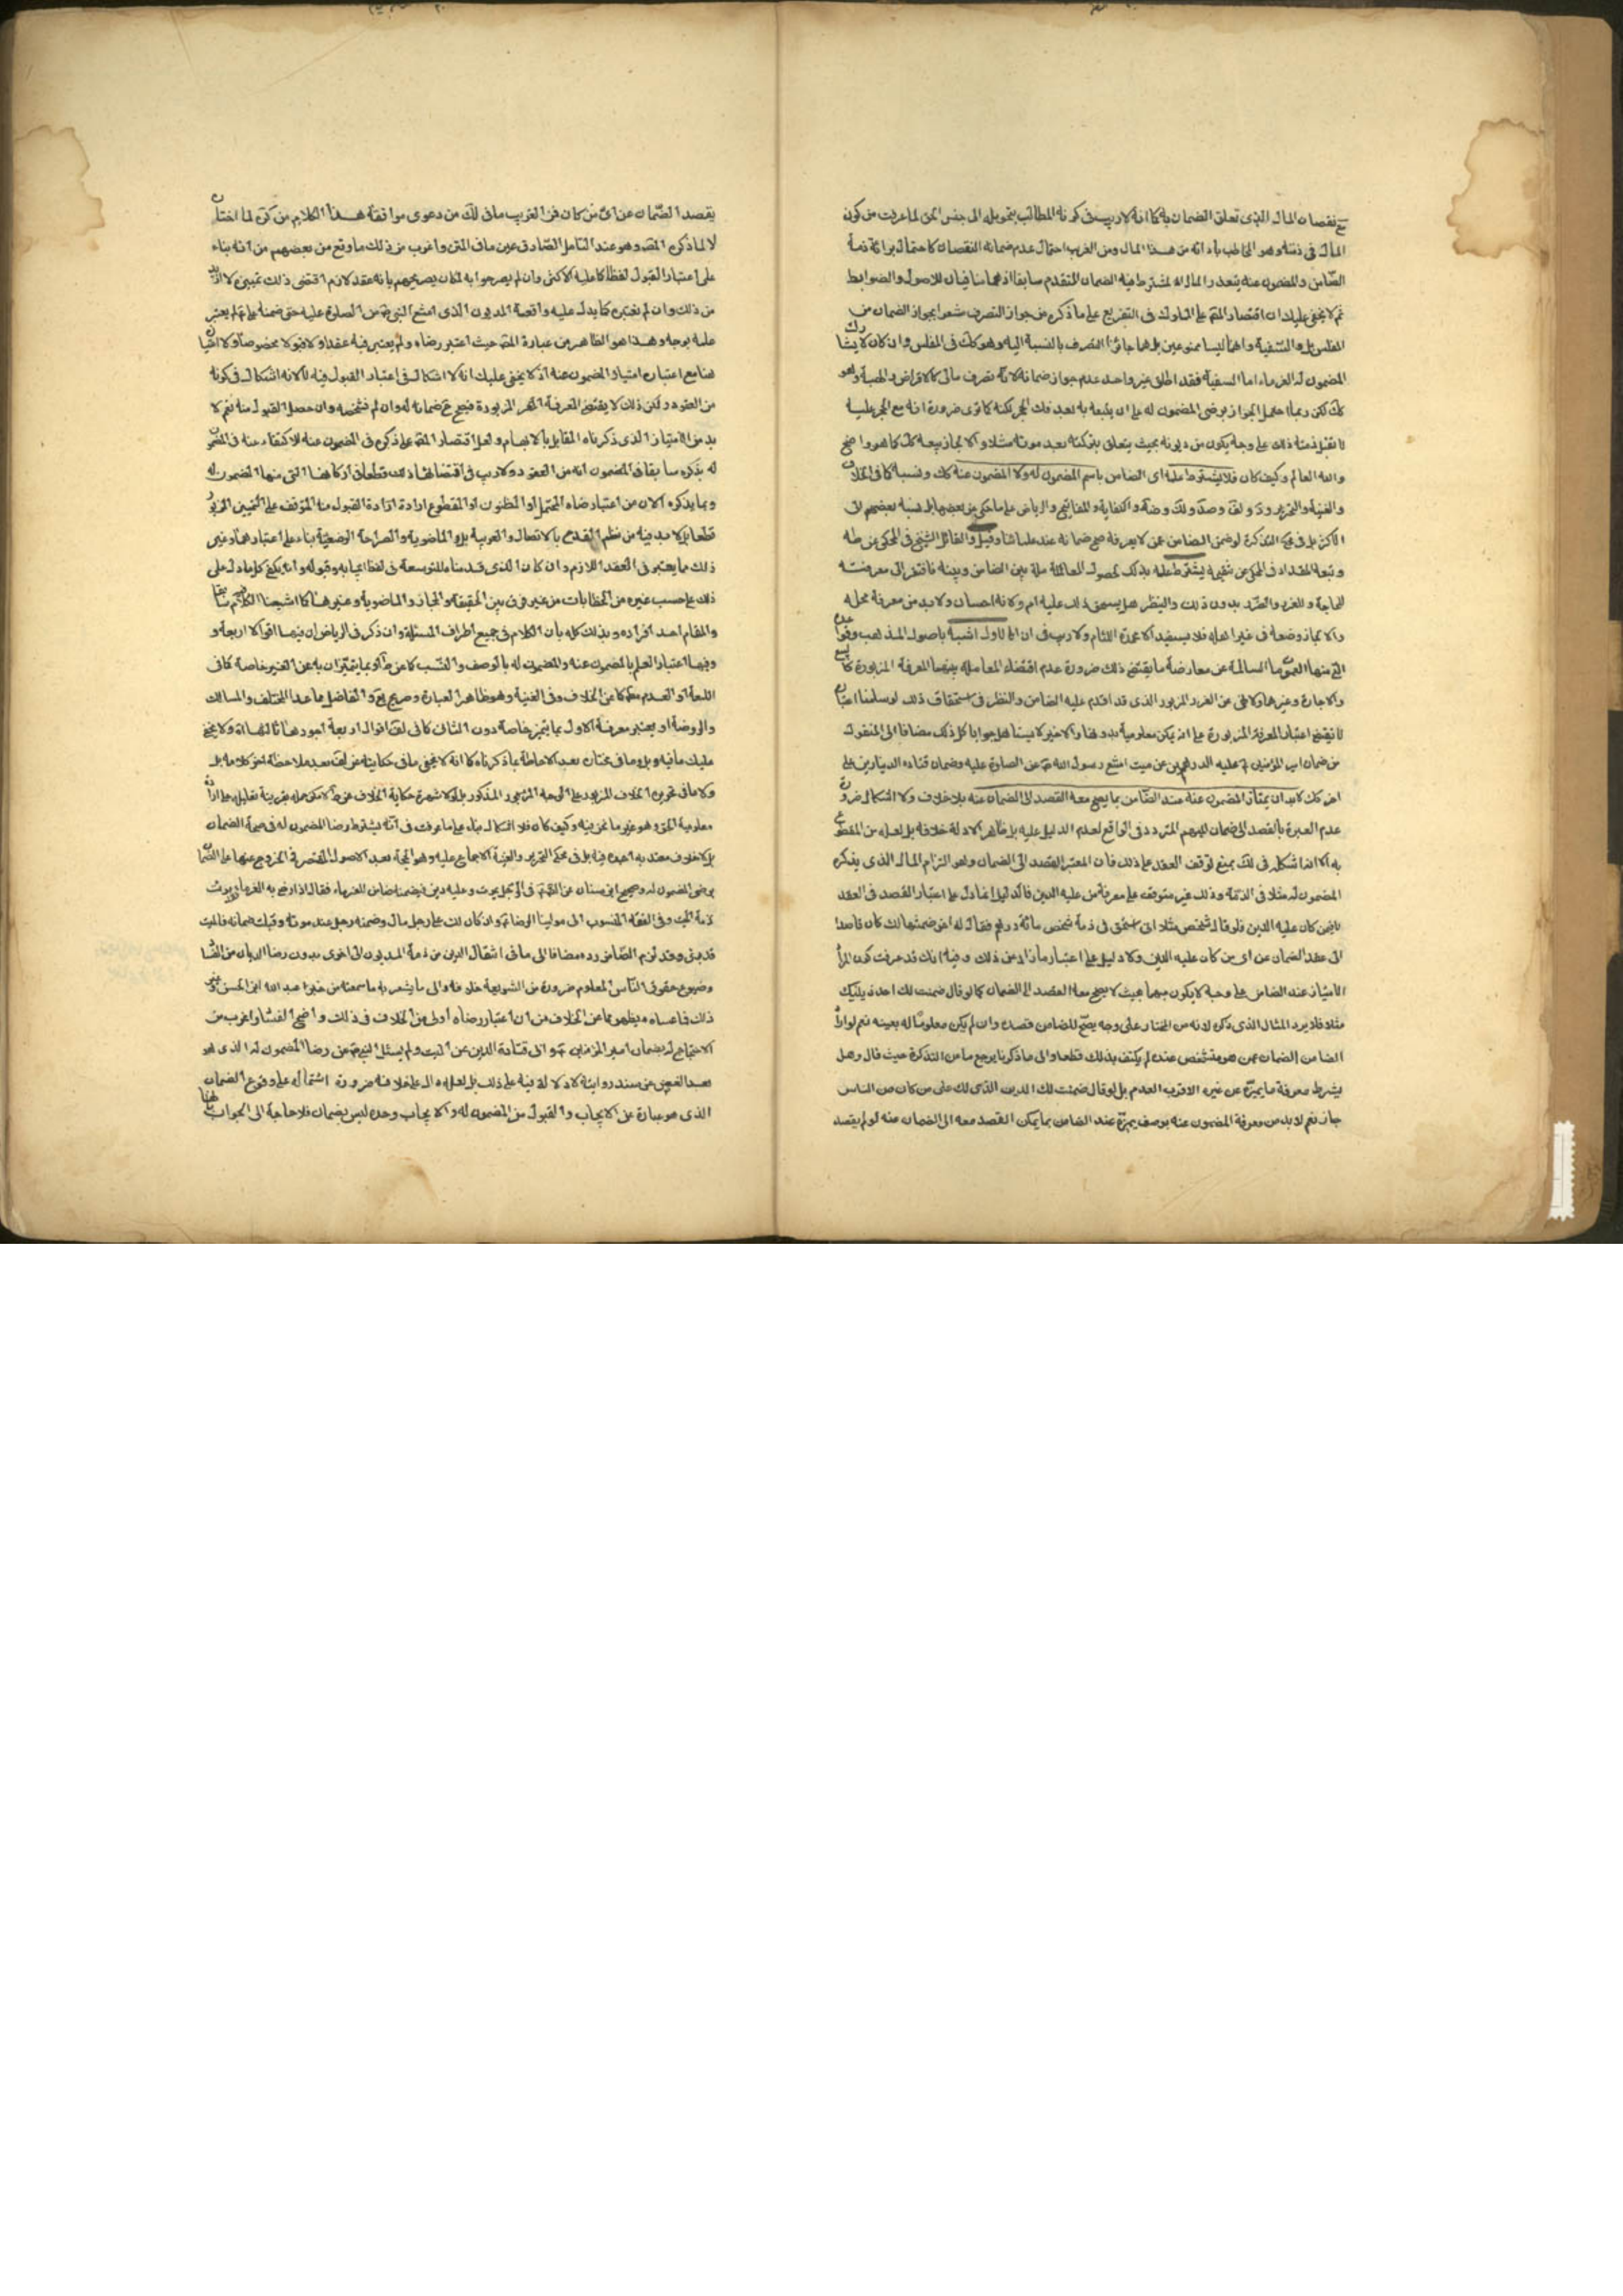 مع نقصان المال الذى تعلق الضمان به كما انه لا ريب فى كونه المطالب بتحويله الى جنس الحق لما عرفت من كون
المال فى ذمته وهو المخاطب بادائه من هذا المال ومن الغريب احتمال عدم ضمانه النقصان كاحتمال براءة ذمة
الضامن والمضمون عنه بتعذر المال المشترط فيه الضمان المتقدم سابقا اذ هما منافيان للاصول والضوابط
ثم لا يخفى عليك ان اقتصار المصـ على المملوك فى التفريع على ما ذكره من جواز التصرف مشعر بجواز الضمان من
المفلس بل والسفيه وانهما ليسا ممنوعين بل هما جائزا التصرف بالنسبة اليه وهو كك فى المفلس وان كان لا يشارك
المضمون له الغرماء اما السفيه فقد اطلق غير واحد عدم جواز ضمانه لانه تصرف مالى كالاقراض والهبة وهو
كك لكن ربما احتمل الجواز برضى المضمون له على ان يتبعه به بعد فك الحجر لكنه كما ترى ضرورة انه مع الحجر عليه
لا تقبل ذمته ذلك على وجه يكون من ديونه بحيث يتعلق بتركته بعد موته مثلا والا لجاز بيعه كك كما هو واضح
والله العالم وكيف كان فلا يشترط علمه اى الضامن باسم المضمون له ولا المضمون عنه كك ونسبه كما فى الخلاف
والغنية والتحرير و و و والكفاية والمفاتيح والرياض على ما حكى عن بعضها بل نسبه بعضهم الى
الاكثر بل فى محكى التذكرة لو ضمن الضامن عمن لا يعرفه صح ضمانه عند علمائنا وقيل والقائل الشيخ فى المحكى عن طه
وتبعه المقداد فى المحكى عن تنقيحه يشترط علمه بذلك لحصول المعاملة بين الضامن وبينه فافتقر الى معرفته
للحاجة وللغرر والضرر بدون ذلك ولينظر هل يستحق ذلك عليه ام لا وكانه احسان ولا بد من معرفة محله
والا لجاز وضعه فى غير اهله فلا يستفيد الا محمدة اللئام ولا ريب فى ان الاول اشبه باصول المذهب وقواعده
التى منها العمومات السالمة عن معارضة ما يقتضى ذلك ضرورة عدم اقتضاء المعاملة بينهما المعرفة المزبورة كالبيع
والاجارة وغيرهما وكالاغى عن الغرر المزبور الذى قد اقدم عليه الضامن والنظر فى استحقاق ذلك لو سلمنا اعتباره
لا يقتضى اعتبار المعرفة المزبورة على انه يمكن معلوميته بدونها والاخير لا يستاهل جوابا كل ذلك مضافا الى المنقول
من ضمان امير المؤمنين عليه الدرهمين عن ميت امتنع رسول الله صـ عن الصلوة عليه وضمان قتاده الدينارين على
اخر كك لا بد ان يمتاز المضمون عنه عند الضامن بما يصح معه القصد الى الضمان عنه بلا خلاف ولا اشكال ضرورة
عدم العبرة بالقصد الى ضمان المبهم المتردد فى الواقع لعدم الدليل عليه بل ظاهر الادلة خلافه بل لعله من المقطوع
به الا انه اشكله فى لك بمنع توقف العقد على ذلك فان المعتبر القصد الى الضمان وهو التزام المال الذى يذكره
المضمون له مثلا فى الذمة وذلك غير متوقف على معرفة من عليه الدين فالدليل انما دل على اعتبار القصد فى العقد
لا فيمن كان عليه الدين فلو قال شخص مثلا انى استحق فى ذمة شخص مائة درهم فقال له اخر ضمنتها لك كان قاصدا
الى عقد الضمان عن اى من كان عليه الدين ولا دليل على اعتبار ما زاد عن ذلك وفيه انك قد عرفت كون المراد
الامتياز عند الضامن على وجه لا يكون مبهما بحيث لا يصح معه القصد الى الضمان كما لو قال ضمنت لك احد دينيك
مثلا فلا يرد المثال الذى ذكره لانه من المختار على وجه يصح للضامن قصده وان لم يكن معلوما له بعينه نعم لو اراد
الضامن الضمان عمن هو متشخص عنده لم يكتف بذلك قطعا والى ما ذكرنا يرجع ما من التذكرة حيث قال وهل
يشترط معرفة ما يميزه عن غيره الاقرب العدم بل لو قال ضمنت لك الدين الذى لك على من كان من الناس
جاز نعم لا بد من معرفة المضمون عنه بوصف يميزه عند الضامن بما يمكن القصد معه الى الضمان عنه لو لم يقصد
يقصد الضمان عن اى من كان فمن الغريب ما فى لك من دعوى موافقة هذا الكلام من كرة لما اختاره
لا لما ذكره المصـ وهو عند التامل الصادق عين ما فى المتن واغرب من ذلك ما وقع من بعضهم من انه بناء
على اعتبار القبول لفظا كما عليه الاكثر وان لم يصرحوا به لمكان تصريحهم بانه عقد لازم اقتضى ذلك تمييزه لا ازيد
من ذلك وان لم نعتبره كما يدل عليه واقعة المديون الذى امتنع النبى صـ من الصلوة عليه حتى ضمنه على عـ لم يعتبر
علمه بوجه وهذا هو الظاهر من عبارة المصـ حيث اعتبر رضاه ولم يعتبر فيه عقدا ولا قبولا مخصوصا ولا تنافيا
هنا مع اعتباره امتياز المضمون عنه اذ لا يخفى عليك انه لا اشكال فى اعتبار القبول فيه لانه لا اشكال فى كونه
من العقود ولكن ذلك لا يقتضى المعرفة المزبورة فيصح ضمانه له وان لم يشخصه وان حصل القبول منه نعم لا
بد من الامتياز الذى ذكرناه المقابل بالابهام ولعل اقتصار المصـ على ذكره فى المضمون عنه للاكتفاء عنه فى المضمون
له بذكره سابقا فى المضمون انه من العقود ولا ريب فى اقتضائها ذلك قطعا فى اركانها التى منها المضمون له
وبما يذكره الان من اعتبار رضاه المحتمل او المظنون او المقطوع ارادة القبول منه الموقف على التعيين المزبور
قطعا بل لا بد فيه من نظم القدح بالاتصال والعربية بل والماضوية والصراحة الوضعية بناء على اعتبارهما وغير
ذلك مما يعتبر فى العقد اللازم وان كان الذى قدمناه التوسعة فى لفظ ايجابه وقبوله وانه يكفى كل ما دل على
ذلك على حسب غيره من الخطابات من غير فرق بين الحقيقة والمجاز والماضوية وغيرها كما اشبعنا الكلام فيه سابقا
والمقام احد افراده وبذلك كله بان الكلام فى جميع اطراف المسئلة وان ذكر فى الرياض ان فيها اقوالا اربعة و
وفيها اعتبار العلم بالمضمون عنه والمضمون له بالوصف والنسب كما عن ط او بما يتميزان به عن الغير خاصة كما فى
اللمعة او العدم مطلقا كما عن الخلاف وفى الغنية وهو ظاهر العبارة وصريح والفاضل ما عدا المختلف والمسالك
والروضة او يعتبر معرفة الاول بما يتميز خاصة دون الثانى كما فى لف اقوال اربعة اجودها ثالثها اه ولا يخفى
عليك ما فيه وبل وما فى مختاره بعد الاحاطة بما ذكرناه كما انه لا يخفى ما فى حكايته عن لف بعد ملاحظة اخر كلامه بل
وكلما فى تحرير الخلاف المزبور على الوجه المزبور المذكور بل لولا شهرة حكاية الخلاف عن ط لامكن حمله بقرينة تعليله على ارادة
معلومية الحق وهو غير ما نحن فيه وكيف كان فلا اشكال بناء على ما عرفت فى انه يشترط رضا المضمون له فى صحة الضمان
بل لا خلاف معتد به اجده فيه بل فى محكى التحرير والغنية الاجماع عليه وهو الحجة بعد الاصول المقتصر فى الخروج عنها على المتيقن
برضى المضمون له وصحيح ابن سنان عن الصـ فى الرجل يموت وعليه دين فيضمنه ضامن للغرماء فقال اذا رضى به الغرماء فقد برئت
ذمة الميت وفى الفقه المنسوب الى مولينا الرضا عـ وان كان لك على رجل مال وضمنه رجل عند موته وقبلت ضمانه فالميت
قد برئ وقد لزم الضامن رده مضافا الى ما فى انتقال الدين من ذمة المديون الى اخرى بدون رضا الديان من الفساد
وضياع حقوق الناس المعلوم ضرورة من الشريعة خلافه والى ما يشعر به ما سمعته من خبر عبد الله ابن الحسن وغير
ذلك فما عساه يظهر مما عن الخلاف من ان اعتبار رضاه اولى من الخلاف فى ذلك واضح الفساد واغرب من
الاحتجاج له بضمان امير المؤمنين عـ وابى قتادة الدين عن الميت ولم يسئل النبى صـ عن رضا المضمون له الذى هو
بعد الغض عن سند روايته لا دلالة فيه على ذلك بل لعله دال على خلافه ضرورة اشتماله على وقوع الضمان
الذى هو عبارة عن الايجاب والقبول من المضمون له والايجاب وحده ليس بضمان فلا حاجة الى الجواب عنها